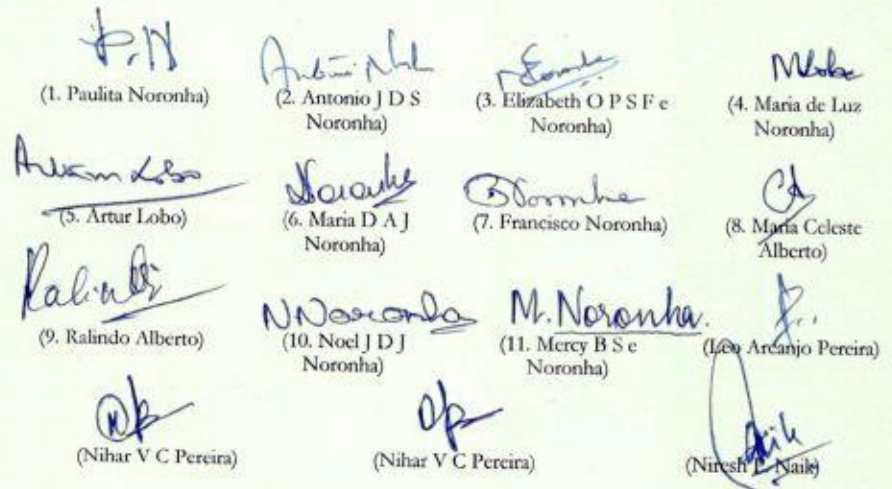 P.N
(1. Paulita Noronha)
(2. Antonio J D S
Noronha)
(3. Elizabeth O P S F e
Noronha)
MLobo
(4. Maria de Luz
Noronha)
Lobo
(5. Artur Lobo)
Noronha
(6. Maria D A J
Noronha)
Noronha
(7. Francisco Noronha)
(8. Maria Celeste
Alberto)
(9. Ralindo Alberto)
N Noronha
(10. Noel J D J
Noronha)
M. Noronha.
(11. Mercy B S e
Noronha)
(Leo Arcanjo Pereira)
(Nihar V C Pereira)
(Nihar V C Pereira)
Naik
(Niresh P. Naik)